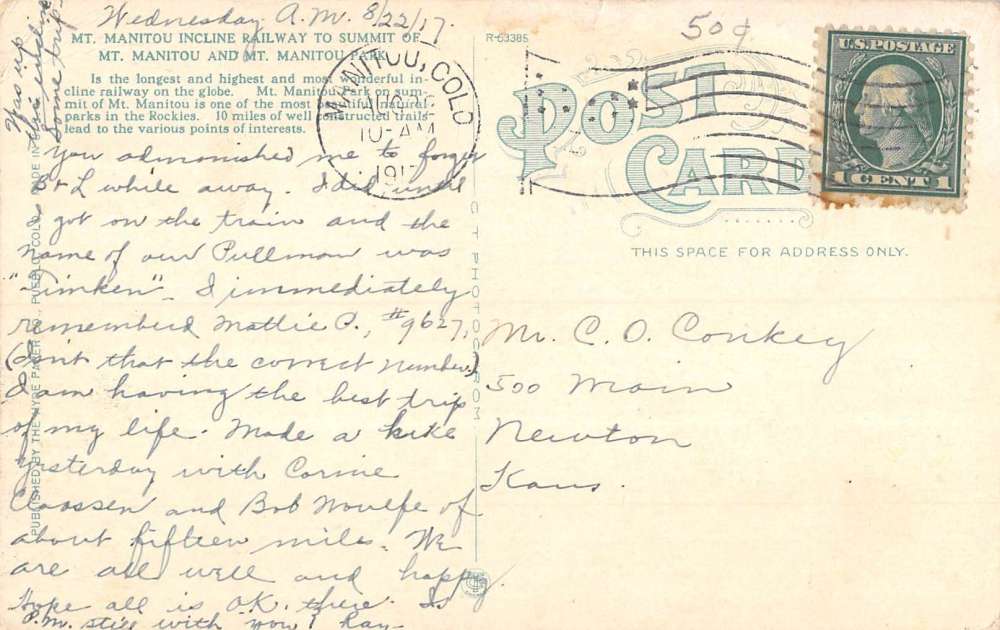 Wednesday A.M. 8/22/17.
50¢
MT. MANITOU INCLINE RAILWAY TO SUMMIT OF
MT. MANITOU AND MT. MANITOU PARK
Is the longest and highest and most wonderful in-
cline railway on the globe. Mt. Manitou Park on sum-
mit of Mt. Manitou is one of the most beautiful natural
parks in the Rockies. 10 miles of well constructed trails
lead to the various points of interests.
Was up
this incline
Some trip
You admonished me to forget
B & L while away. I did until
I got on the train and the
name of our Pullman was
"Timken". I immediately
remembered Mattie P., #9627,
(Isn't that the correct number.)
I am having the best trip
of my life. Made a hike
yesterday with Corine
Claassen and Bob Woulfe of
about fifteen miles. We
are all well and happy.
Hope all is O.K. there. Is
P.M. still with you? Ray
PUBLISHED BY THE HYRE PAPER CO., PUEBLO, COLO. MADE IN
C T PHOTOCHROM
R-63385
MANITOU, COLO
AUG
10-AM
1917
POST CARD
U.S. POSTAGE
1 CENT 1
THIS SPACE FOR ADDRESS ONLY.
Mr. C. O. Conkey
500 Main
Newton
Kans.